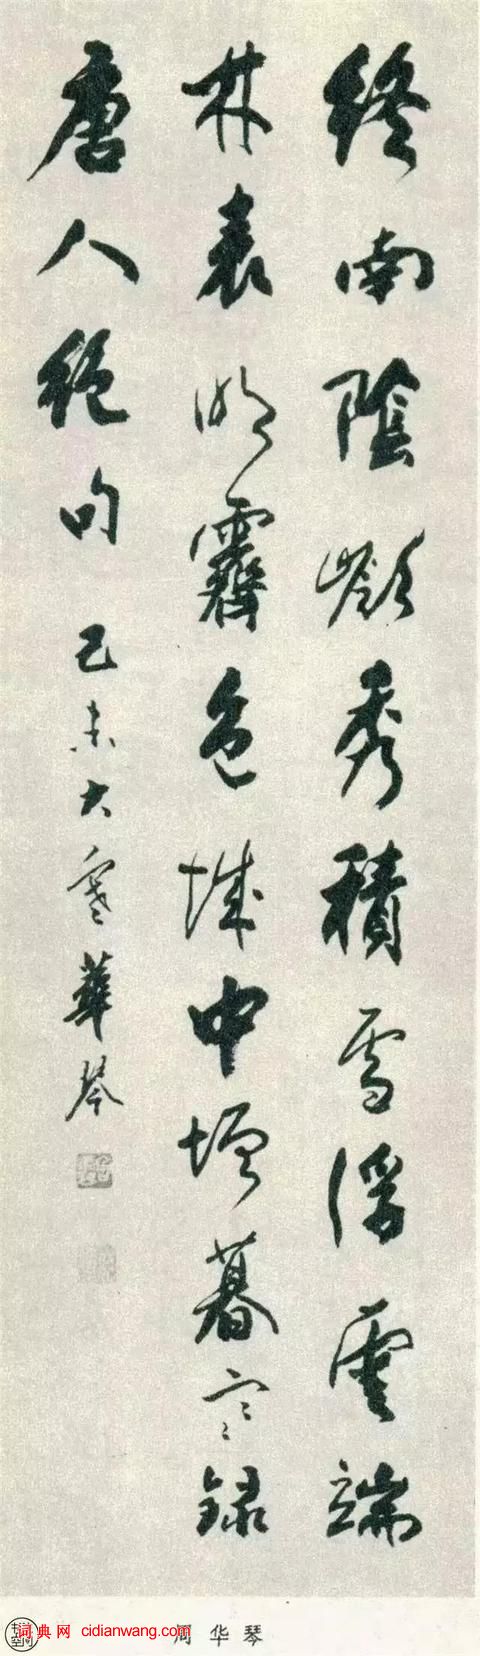 終南陰嶺秀積雪浮雲端
林表明霽色城中增暮寒錄
唐人絕句 己未大寒 華琴
词典网 cidianwang.com
周华琴